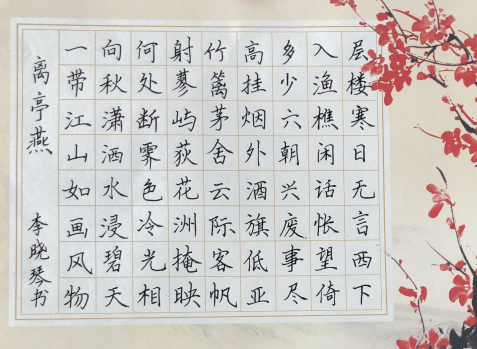 离亭燕
一带江山如画风物
向秋潇洒水浸碧天
何处断霁色冷光相
射蓼屿荻花洲掩映
竹篱茅舍云际客帆
高挂烟外酒旗低亚
多少六朝兴废事尽
入渔樵闲话怅望倚
层楼寒日无言西下
李晓琴书